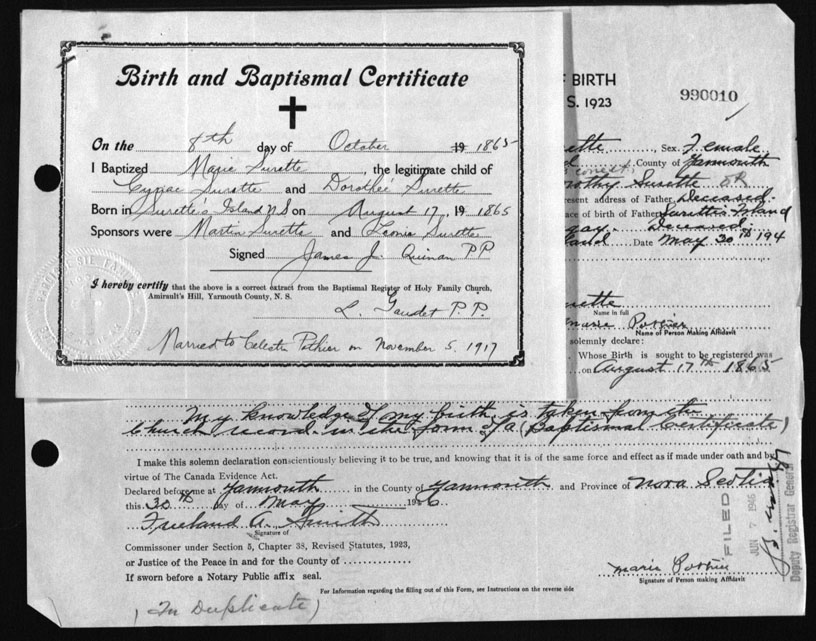 Birth and Baptismal Certificate
On the 8th day of October 19 1865
I Baptized Marie Surette, the legitimate child of
Surette and Dorothée Surette
Born in Surette's Island N S on August 17, 19 1865
Sponsors were Martin Surette and Leonie Surette
Signed James J. Quinan P P
I hereby certify that the above is a correct extract from the Baptismal Register of Holy Family Church,
Amirault's Hill, Yarmouth County, N. S.
L. Gaudet P. P.
Married to Celestin Pothier on November 5, 1917
F BIRTH
S. 1923
990010
ette, Sex. Female
County of Yarmouth
othy Surette OR
resent address of Father Deceased.
ace of birth of Father Surettes Island
Deceased
land Date May 30th 194
urette
Name in full
marie Pothier
Name of Person Making Affidavit
solemnly declare:
Whose Birth is sought to be registered was
on August 17th 1865
My knowledge of my birth is taken from the
Church record in the form of a (Baptismal Certificate)
I make this solemn declaration conscientiously believing it to be true, and knowing that it is of the same force and effect as if made under oath and by
virtue of The Canada Evidence Act.
Declared before me at Yarmouth in the County of Yarmouth and Province of Nova Scotia
this 30th day of May 1946
Freeland A. Smith
Signature of
Commissioner under Section 5, Chapter 38, Revised Statutes, 1923,
or Justice of the Peace in and for the County of
If sworn before a Notary Public affix seal.
marie Pothier
Signature of Person making Affidavit
For Information regarding the filling out of this Form, see Instructions on the reverse side
(In Duplicate)
FILED
JUN 7 1946
Deputy Registrar General